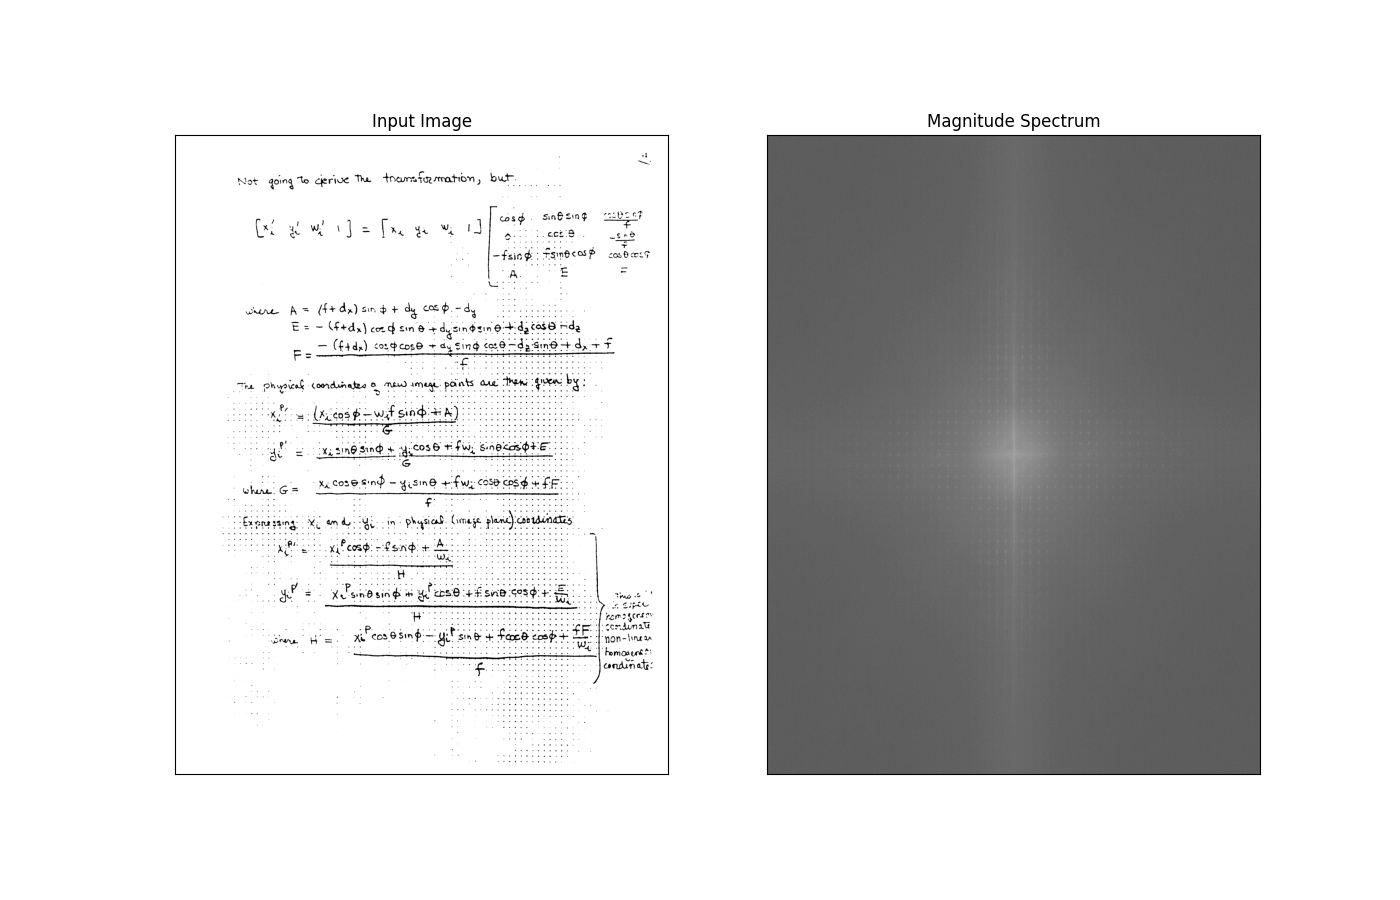 Input Image
Magnitude Spectrum
Not going to derive the transformation, but
[x_i' y_i' w_i' 1] = [x_i y_i w_i 1] [cosφ sinθsinφ cosθsinφ/f
0 cosθ -sinθ/f
-fsinφ fsinθcosφ cosθcosφ
A E F
where A = (f+dx) sin φ + dy cosφ - dy
E = - (f+dx) cosφ sinθ + dy sinφ sinθ + dz cosθ - dz
F = - (f+dx) cosφcosθ + dy sinφ cosθ - dz sinθ + dx + f / f
The physical coordinates of new image points are then given by:
x_i^P' = (x_i cosφ - w_i f sinφ + A) / G
y_i^P' = x_i sinθsinφ + y_i cosθ + fw_i sinθcosφ + E / G
where G = x_i cosθ sinφ - y_i sinθ + fw_i cosθ cosφ + fF / f
Expressing x_i and y_i in physical (image plane) coordinates
x_i^P' = x_i^P cosφ - fsinφ + A/w_i / H
y_i^P' = x_i^P sinθsinφ + y_i^P cosθ + fsinθ cosφ + E/w_i / H
where H = x_i^P cosθsinφ - y_i^P sinθ + fcosθ cosφ + fF/w_i / f
This is
homogeneou
coordinate
non-linear
homogene
coordinate